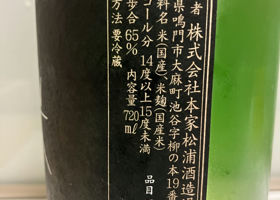 者 株式会社本家松浦酒造場
県鳴門市大麻町池谷字柳の本19番
料名 米(国産)、米麹(国産米)
コール分 14度以上15度未満
歩合 65% 内容量 720ml
方法 要冷蔵
品目